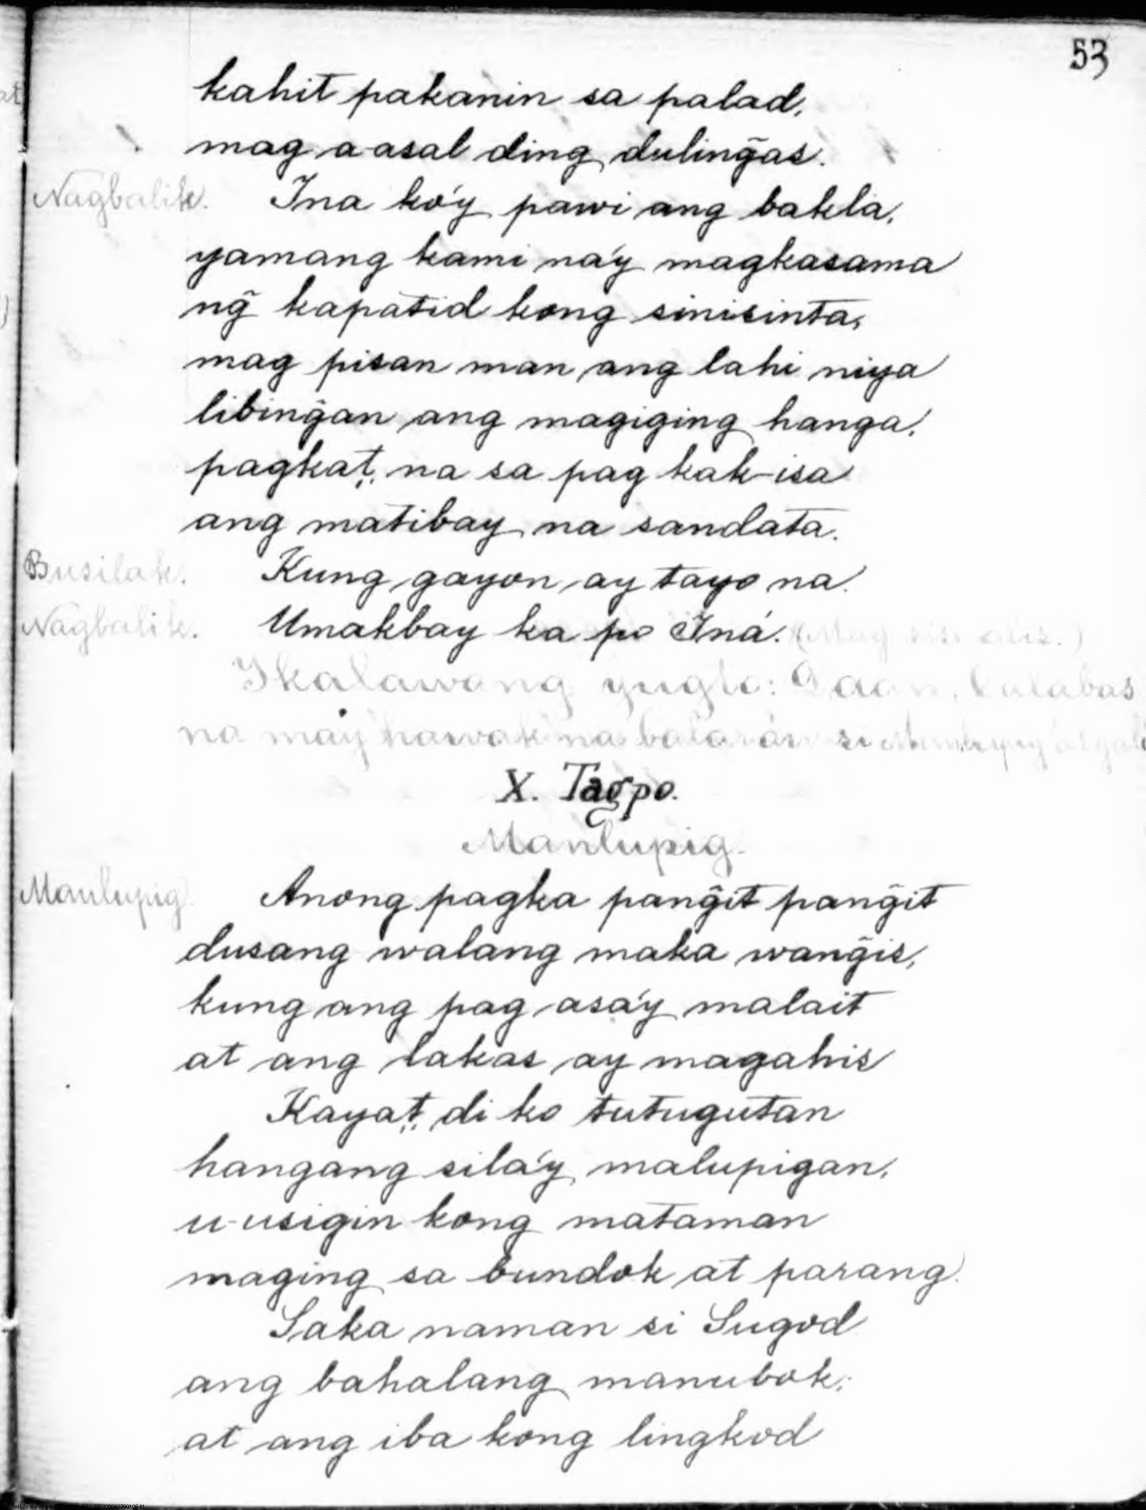 53
kahit pakanin sa palad,
mag a-asal ding duling̃as.
Nagbalik. Ina ko'y pawi ang bakla,
yamang kami na'y magkasama
ng̃ kapatid kong sinisinta,
mag pisan man ang lahi niya
libing̃an ang magiging hanga,
pagkat, na sa pag kak-isa
ang matibay na sandata.
Busilak. Kung gayon ay tayo na.
Nagbalik. Umakbay ka po Iná. (Mag sisi alis.)
Ikalawang yugto: Daan, kalabas
na may hawak na balaráw si
X. Tagpo.
Manlupig.
Manlupig. Anong pagka pang̃it pang̃it
dusang walang maka wang̃is,
kung ang pag asa'y malait
at ang lakas ay magahis
Kayat, di ko tutugutan
hangang sila'y malupigan,
u-usigin kong mataman
maging sa bundok at parang.
Saka naman si Sugod
ang bahalang manubok,
at ang iba kong lingkod